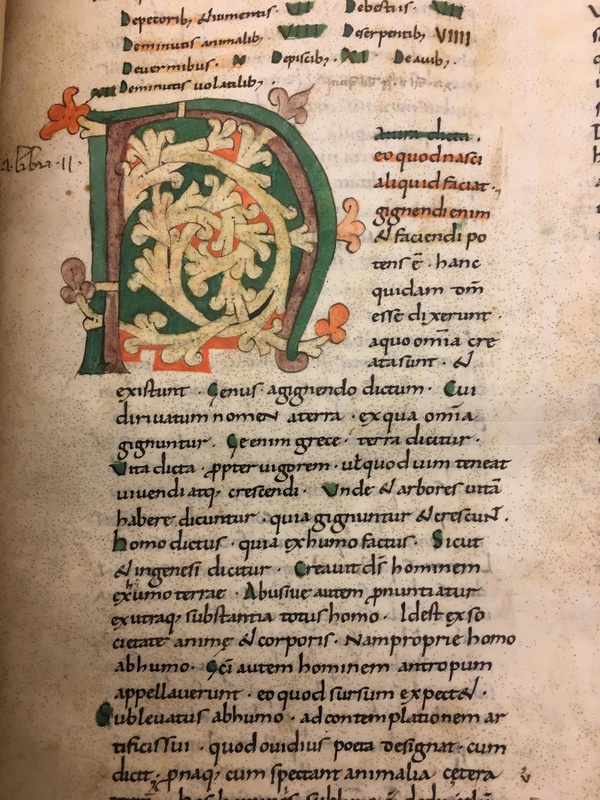 Depecoribꝫ &iumentis · VII Debestiis · VII
Deminutis animalibꝫ · VIII Deserpentibꝫ VIIII
Deuermibus · X Depiscibꝫ · XI Deauibꝫ ·
XII Deminutis uolatilibꝫ ·
N
atura dicta ·
eo quodnasci
aliquid faciat ·
gignendi enim
& faciendi po
tens ē · hanc
quidam om̄
esse dixerunt ·
aquo om̄ia cre
ata sunt · &
existunt · Genus agignendo dictum · Cui
diriuatum nomen aterra · exqua om̄ia
gignuntur · Ge enim grece · terra dicitur ·
Vita dicta · ꝓpter uigorem · ut̄ quod uim teneat
uiuendi atqꝫ crescendi · Vnde & arbores uitā
habere dicuntur · quia gignuntur & crescunt ·
homo dictus · quia exhumo factus · Sicut
& ingenesi dicitur · Creauit dš hominem
exhumo terrae · Abusiue autem ꝓnuntiatur
exutraqꝫ substantia totus homo · Idest exso
cietate animę & corporis · Nam proprie homo
abhumo · Greci autem hominem antropum
appellauerunt · eo quod sursum expect& ·
Subleuatus abhumo · ad contemplationem ar
tificis sui · quod ouidius poeta designat · cum
dicit · ꝓnaqꝫ cum spectant animalia cetera